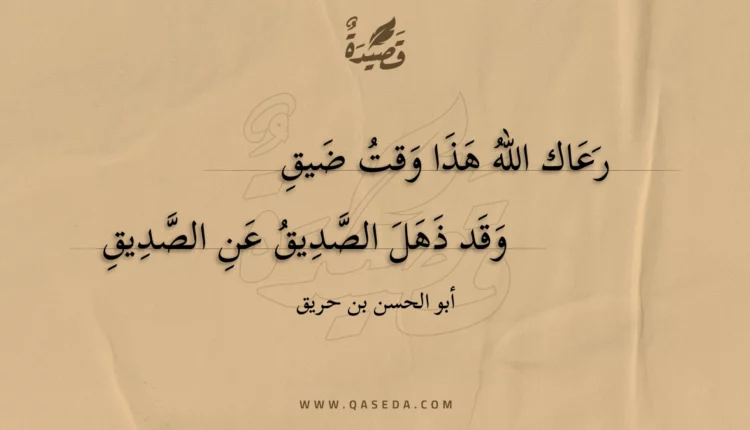 قَصِيدَةٌ
رَعَاك اللهُ هَذَا وَقتُ ضَيقِ
وَقَد ذَهَلَ الصَّدِيقُ عَنِ الصَّدِيقِ
أبو الحسن بن حريق
WWW.QASEDA.COM